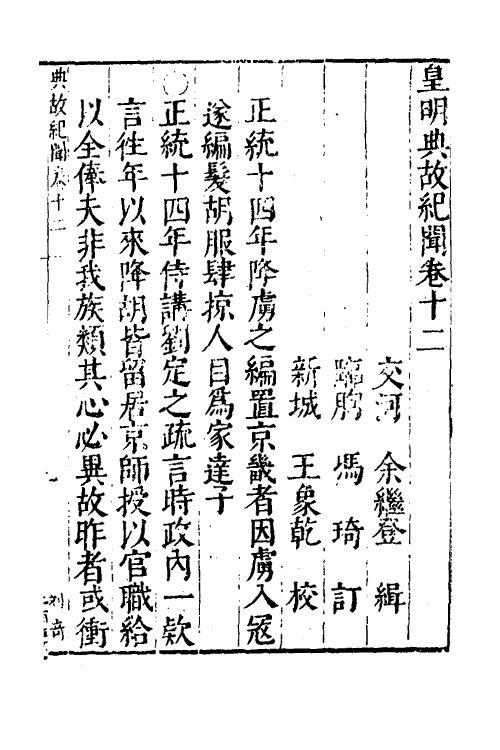 皇明典故紀聞卷十二
交河 余繼登 緝
臨朐 馮琦 訂
新城 王象乾 校
正統十四年降虜之編置京畿者因虜入寇
遂編髮胡服肆掠人目為家達子
○正統十四年侍講劉定之疏言時政內一款
言往年以來降胡皆留居京師授以官職給
以全俸夫非我族類其心必異故昨者或衝
典故紀聞卷十二